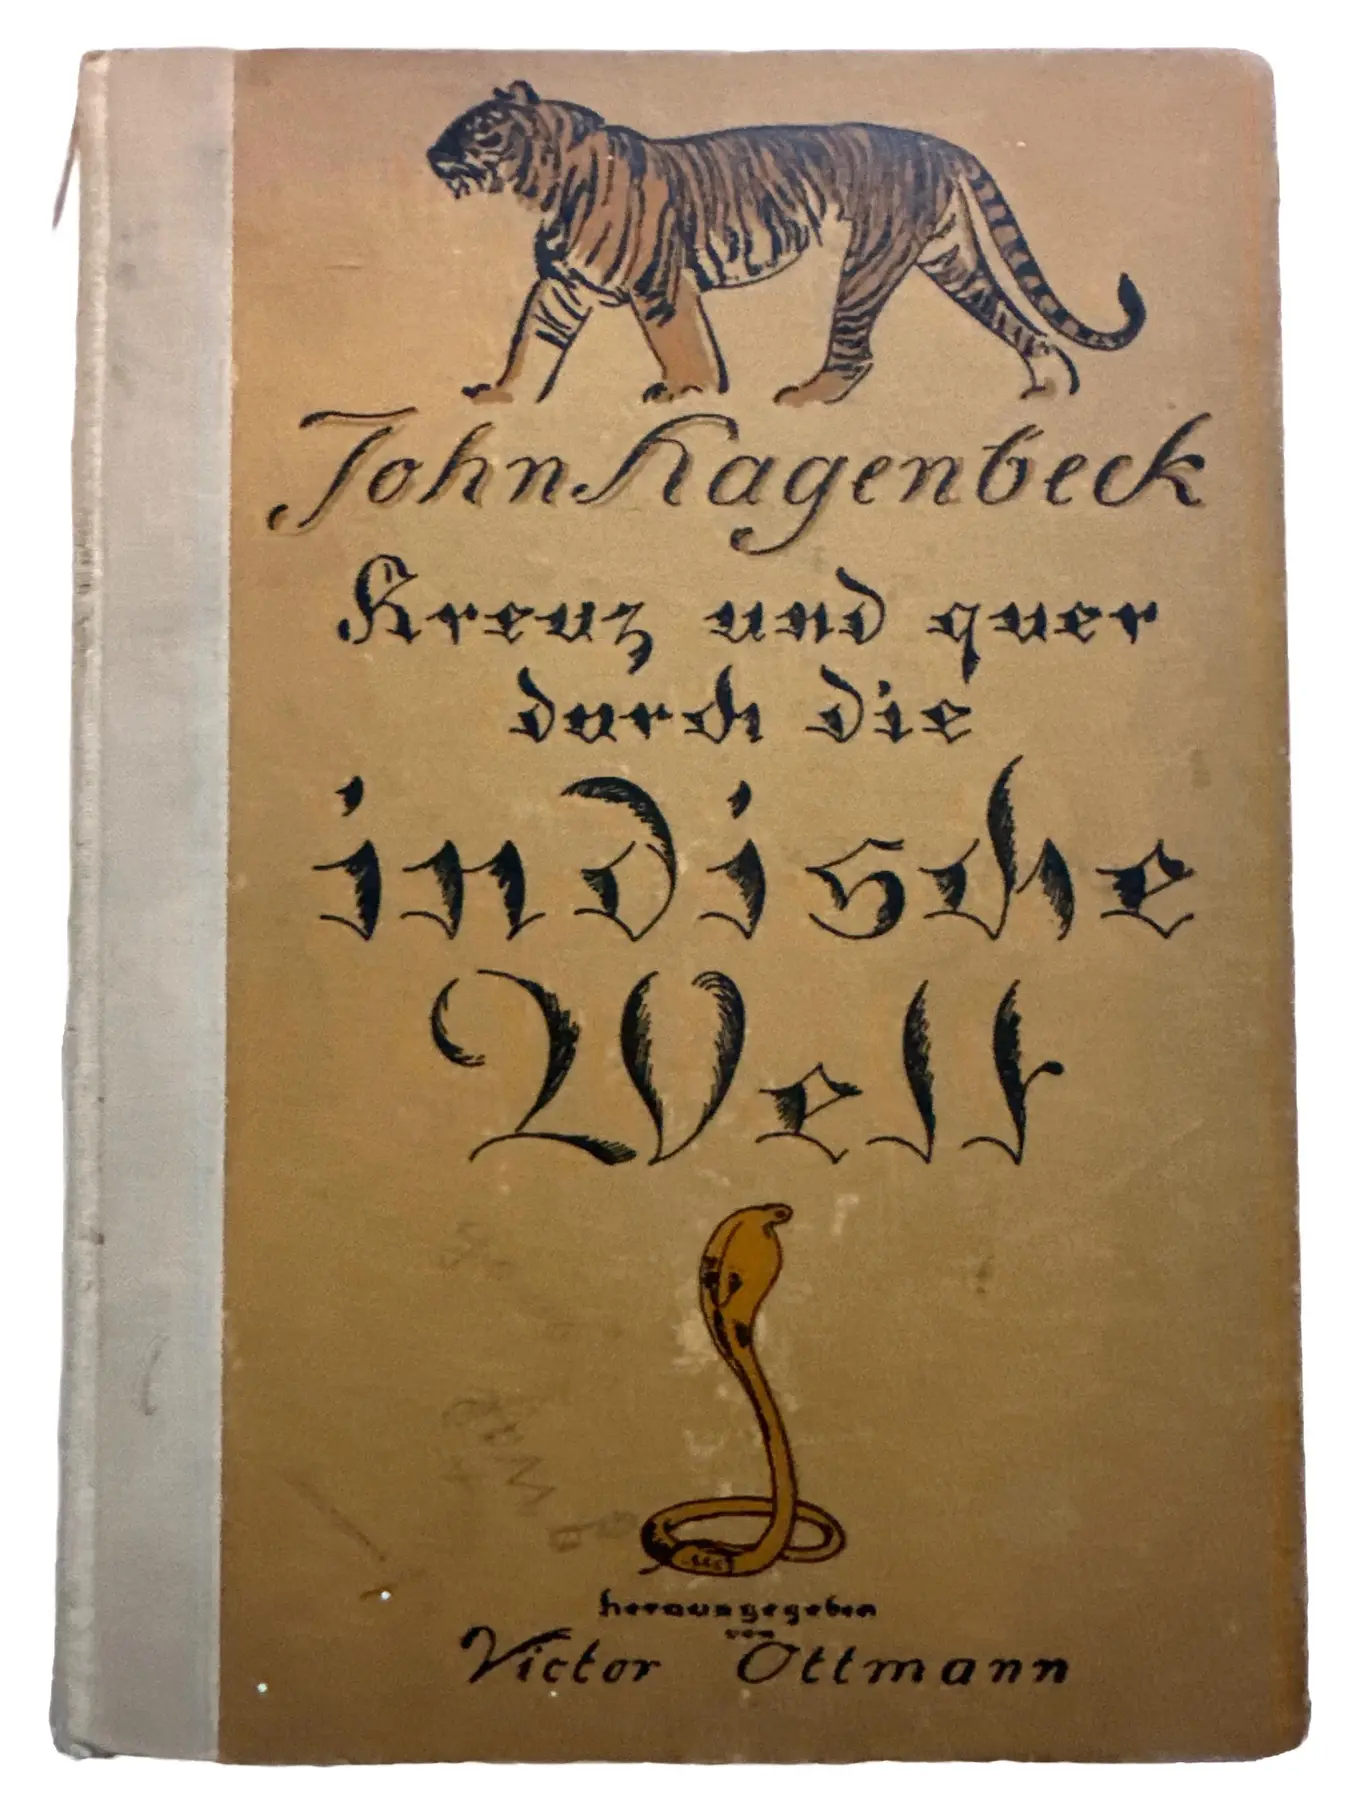 John Hagenbeck
Kreuz und quer
durch die
indische
Welt
herausgegeben
von
Victor Ottmann